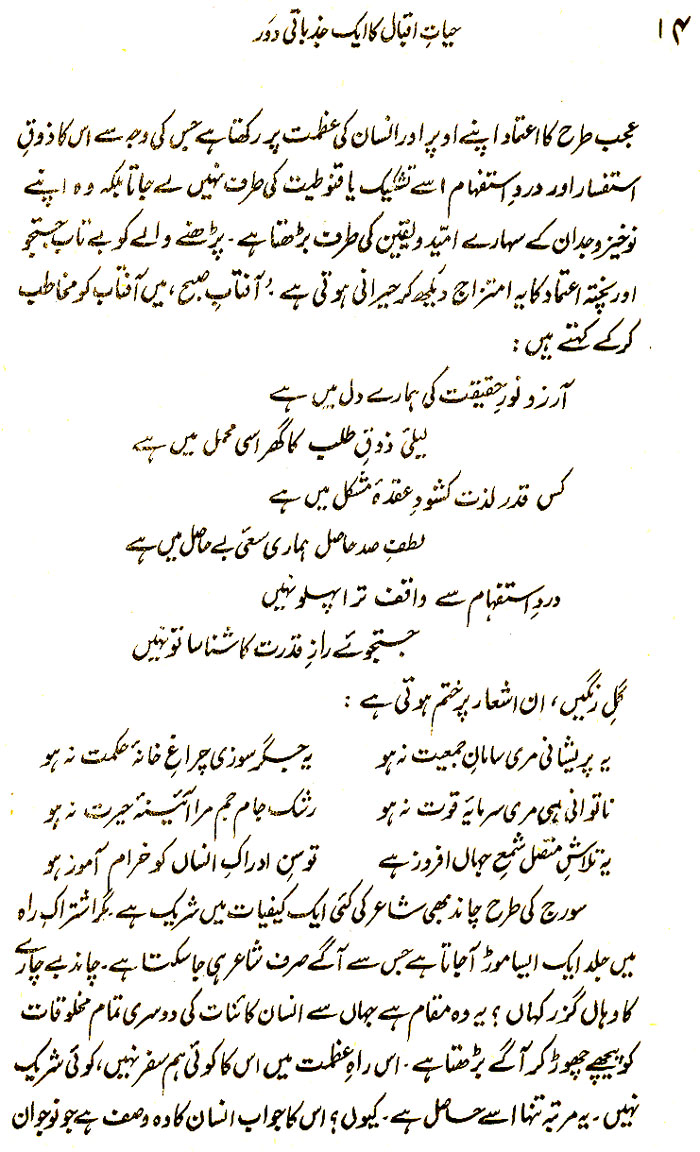 ۱۴
حیاتِ اقبال کا ایک جذباتی دَور
عجب طرح کا اعتماد اپنے اوپر اور انسان کی عظمت پر رکھتا ہے جس کی وجہ سے اس کا ذوقِ
استفسار اور دردِ استفہام اسے تشکیک یا قنوطیت کی طرف نہیں لے جاتا بلکہ وہ اپنے
نوخیز وجدان کے سہارے امیّد و یقین کی طرف بڑھتا ہے۔ پڑھنے والے کو بے تاب جستجو
اور پختہ اعتماد کا یہ امتزاج دیکھ کر حیرانی ہوتی ہے۔ ’آفتابِ صبح‘ میں آفتاب کو مخاطب
کر کے کہتے ہیں :
آرزو نورِ حقیقت کی ہمارے دل میں ہے
لیلیٰ ذوقِ طلب کا گھر اسی محمل میں ہے
کس قدر لذت کشودِ عقدۂ مشکل میں ہے
لطفِ صد حاصل ہماری سعیٔ بے حاصل میں ہے
دردِ استفہام سے واقف ترا پہلو نہیں
جستجوئے رازِ قدرت کا شناسا تو نہیں
گلِ رنگیں، ان اشعار پر ختم ہوتی ہے :
یہ پریشانی مری سامانِ جمعیت نہ ہو یہ جگر سوزی چراغِ خانۂ حکمت نہ ہو
ناتوانی ہی مری سرمایۂ قوت نہ ہو رشک جام جم مرا آئینۂ حیرت نہ ہو
یہ تلاشِ متصل شمعِ جہاں افروز ہے توسنِ ادراکِ انساں کو خرام آموز ہو
سورج کی طرح چاند بھی شاعر کی کئی ایک کیفیات میں شریک ہے۔ مگر اشتراکِ راہ
میں جلد ایک ایسا موڑ آجاتا ہے جس سے آگے صرف شاعر ہی جاسکتا ہے۔ چاند بے چارے
کا وہاں گزر کہاں؟ یہ وہ مقام ہے جہاں سے انسان کائنات کی دوسری تمام مخلوقات
کو پیچھے چھوڑ کر آگے بڑھتا ہے۔ اس راہِ عظمت میں اس کا کوئی ہم سفر نہیں، کوئی شریک
نہیں۔ یہ مرتبہ تنہا اسے حاصل ہے۔ کیوں؟ اس کا جواب انسان کا وہ وصف ہے جو نوجوان